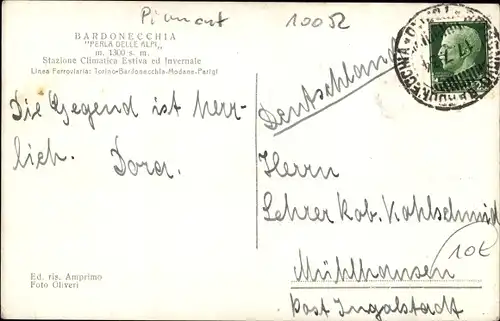 Piemont
10052
BARDONECCHIA
"PERLA DELLE ALPI"
m. 1300 s. m.
Stazione Climatica Estiva ed Invernale
Linea Ferroviaria: Torino-Bardonecchia-Modane-Parigi
Deutschland
Die Gegend ist herr-
lich. Dora.
Herrn
Lehrer Rob. Kohlschmid
10€
Mühlhausen
Post Ingolstadt
Ed. ris. Amprimo
Foto Oliveri